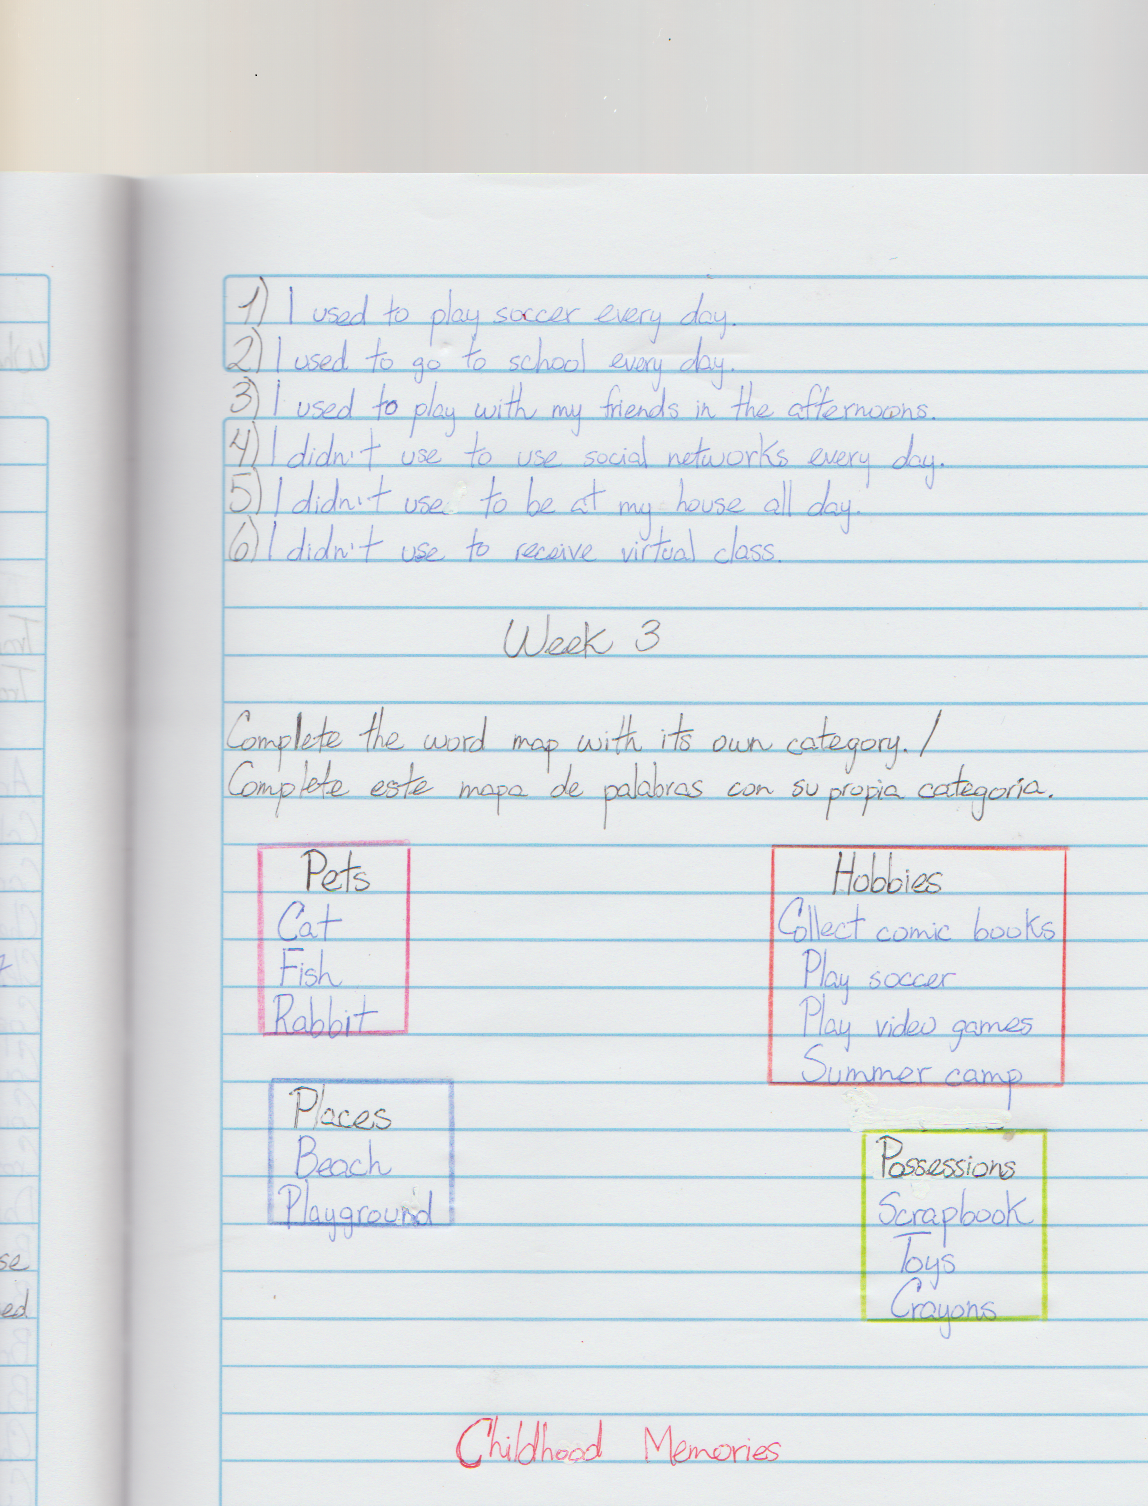 1) I used to play soccer every day.
2) I used to go to school every day.
3) I used to play with my friends in the afternoons.
4) I didn't use to use social networks every day.
5) I didn't use to be at my house all day.
6) I didn't use to receive virtual class.
Week 3
Complete the word map with its own category. /
Complete este mapa de palabras con su propia categoria.
Pets
Cat
Fish
Rabbit
Hobbies
Collect comic books
Play soccer
Play video games
Summer camp
Places
Beach
Playground
Possessions
Scrapbook
Toys
Crayons
se
ed
Childhood Memories